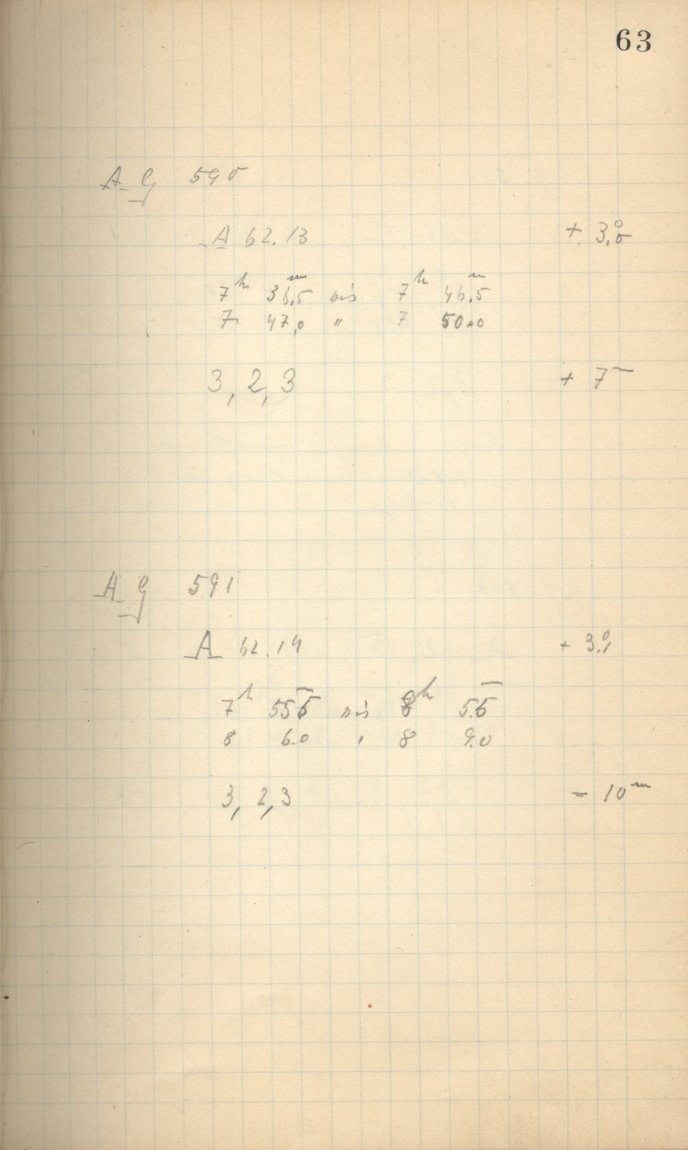 63
A G 590
A 62.13 + 3°,0
7h 36,5m bis 7h 46,5m
7 47,0 " 7 50.0
3, 2, 3 + 7m
A G 591
A 62.14 + 3°,1
7h 55.5m bis 8h 5.5m
8 6.0 " 8 9.0
3, 2, 3 - 10m